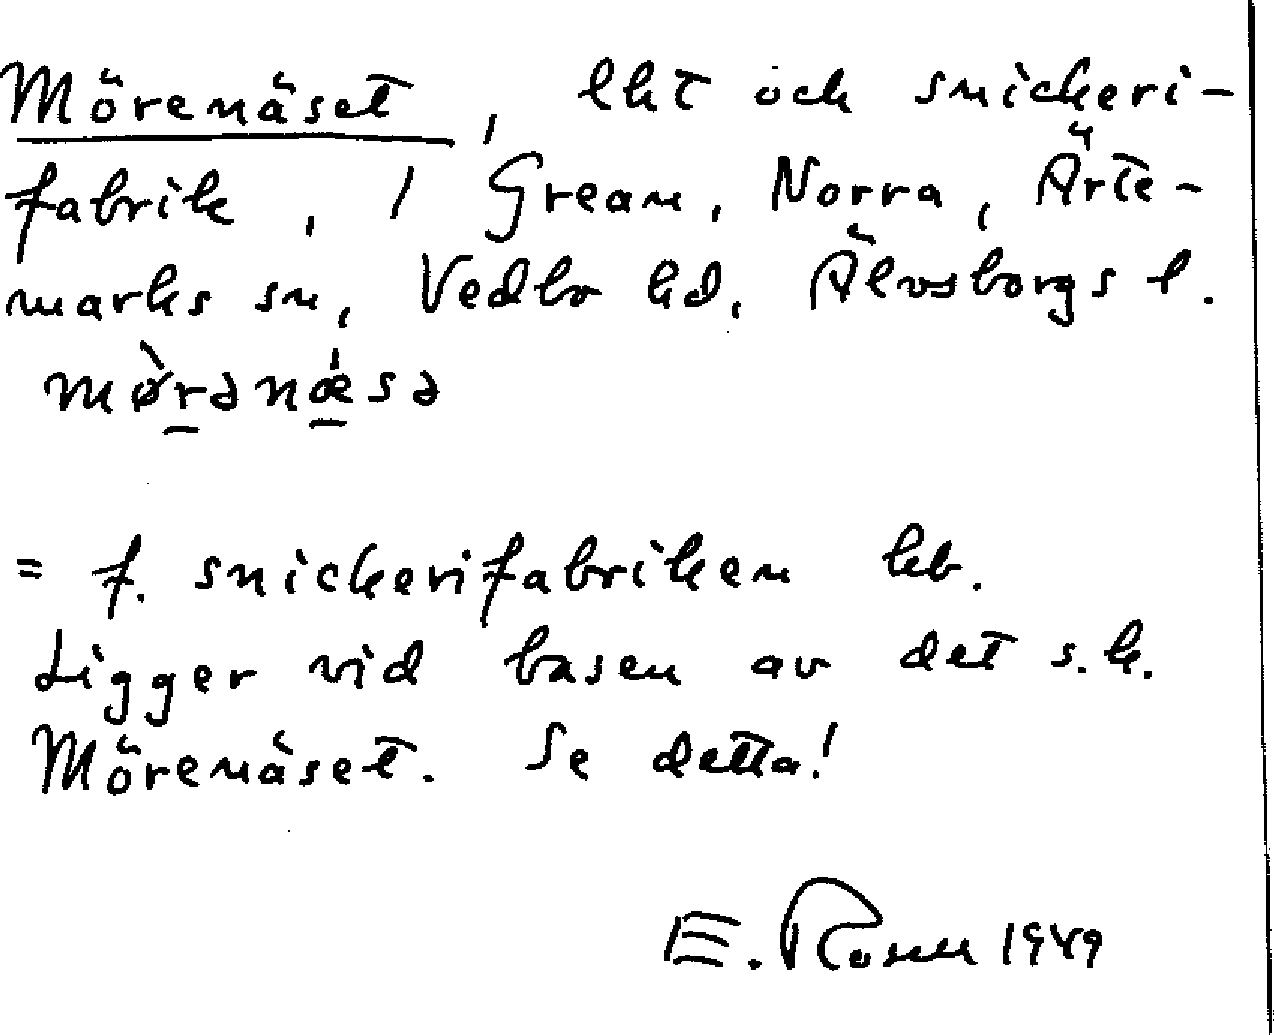 Mörenäset, lht och snickeri-
fabrik, / Grean, Norra, Ärte-
marks sn, Vedbo hd, Älvsborgs l.
mø̀rənǽsə
= f. snickerifabriken kb.
Ligger vid basen av det s.k.
Mörenäset. Se detta!
E. Rosen 1949